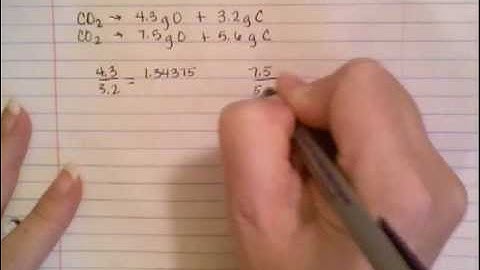 CO₂ → 4.3 g O + 3.2 g C
CO₂ → 7.5 g O + 5.6 g C
4.3 = 1.34375 7.5
3.2 5